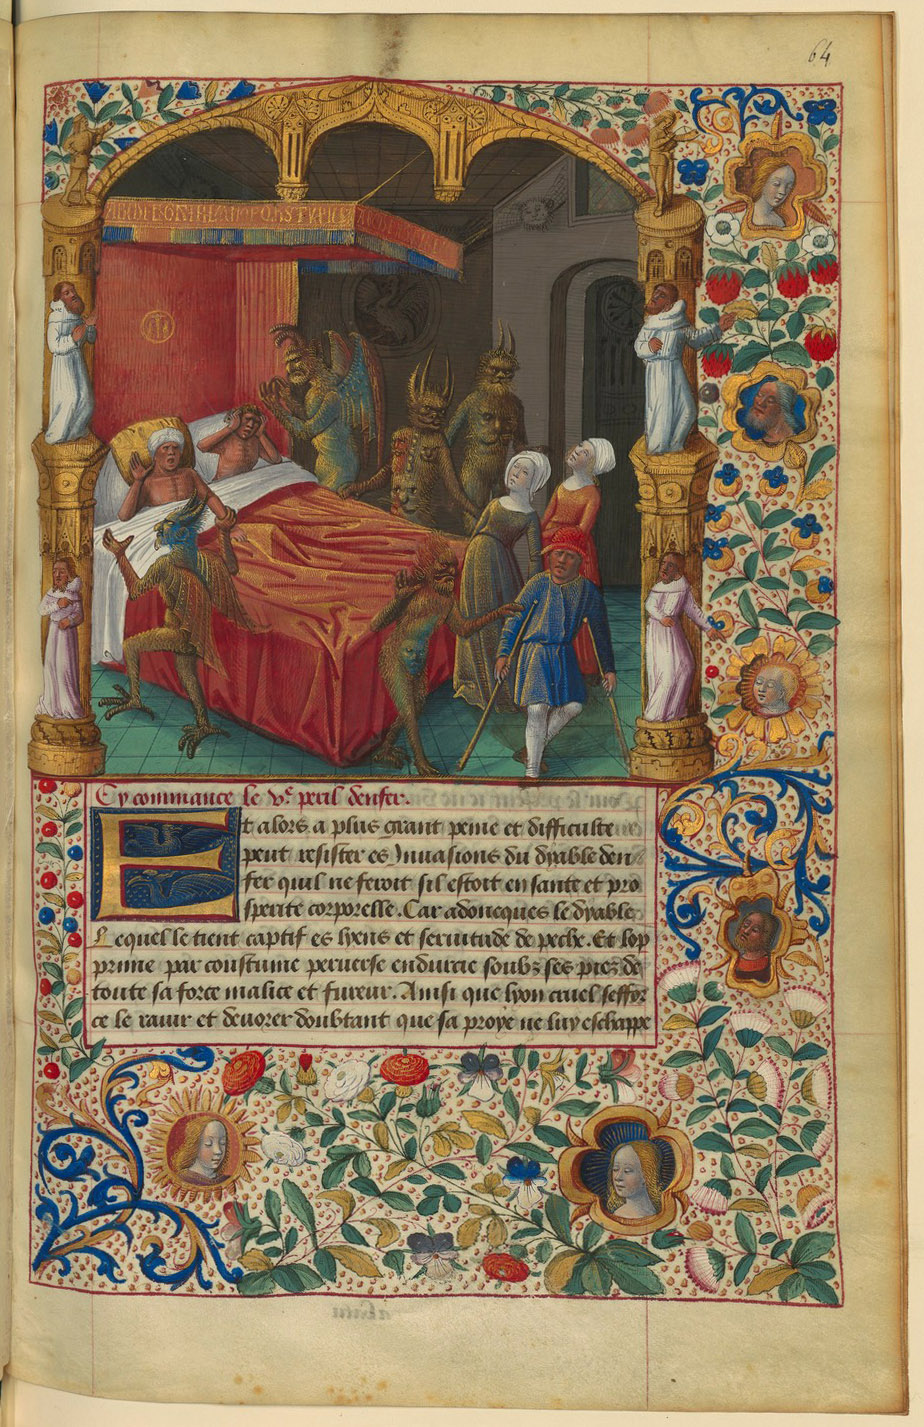 64
Cy commance le v.e peril denfer.
Et alors a plus grant peine et difficulte
peut resister es Inuasions du dyable den
fer quil ne feroit sil estoit en sante et pro
sperite corporelle. Car adoncques le dyable
Lequel le tient captif es lyens et seruitude de peche. Et lop
prime par coustume peruerse endurcie soubz ses piez de
toute sa force malice et fureur. Ainsi que lyon cruel seffor
ce le rauir et deuorer doubtant que sa proye ne luy eschappe